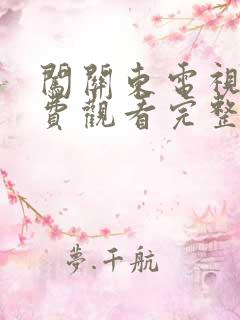 闖關東電視
費觀看完整
夢.千航